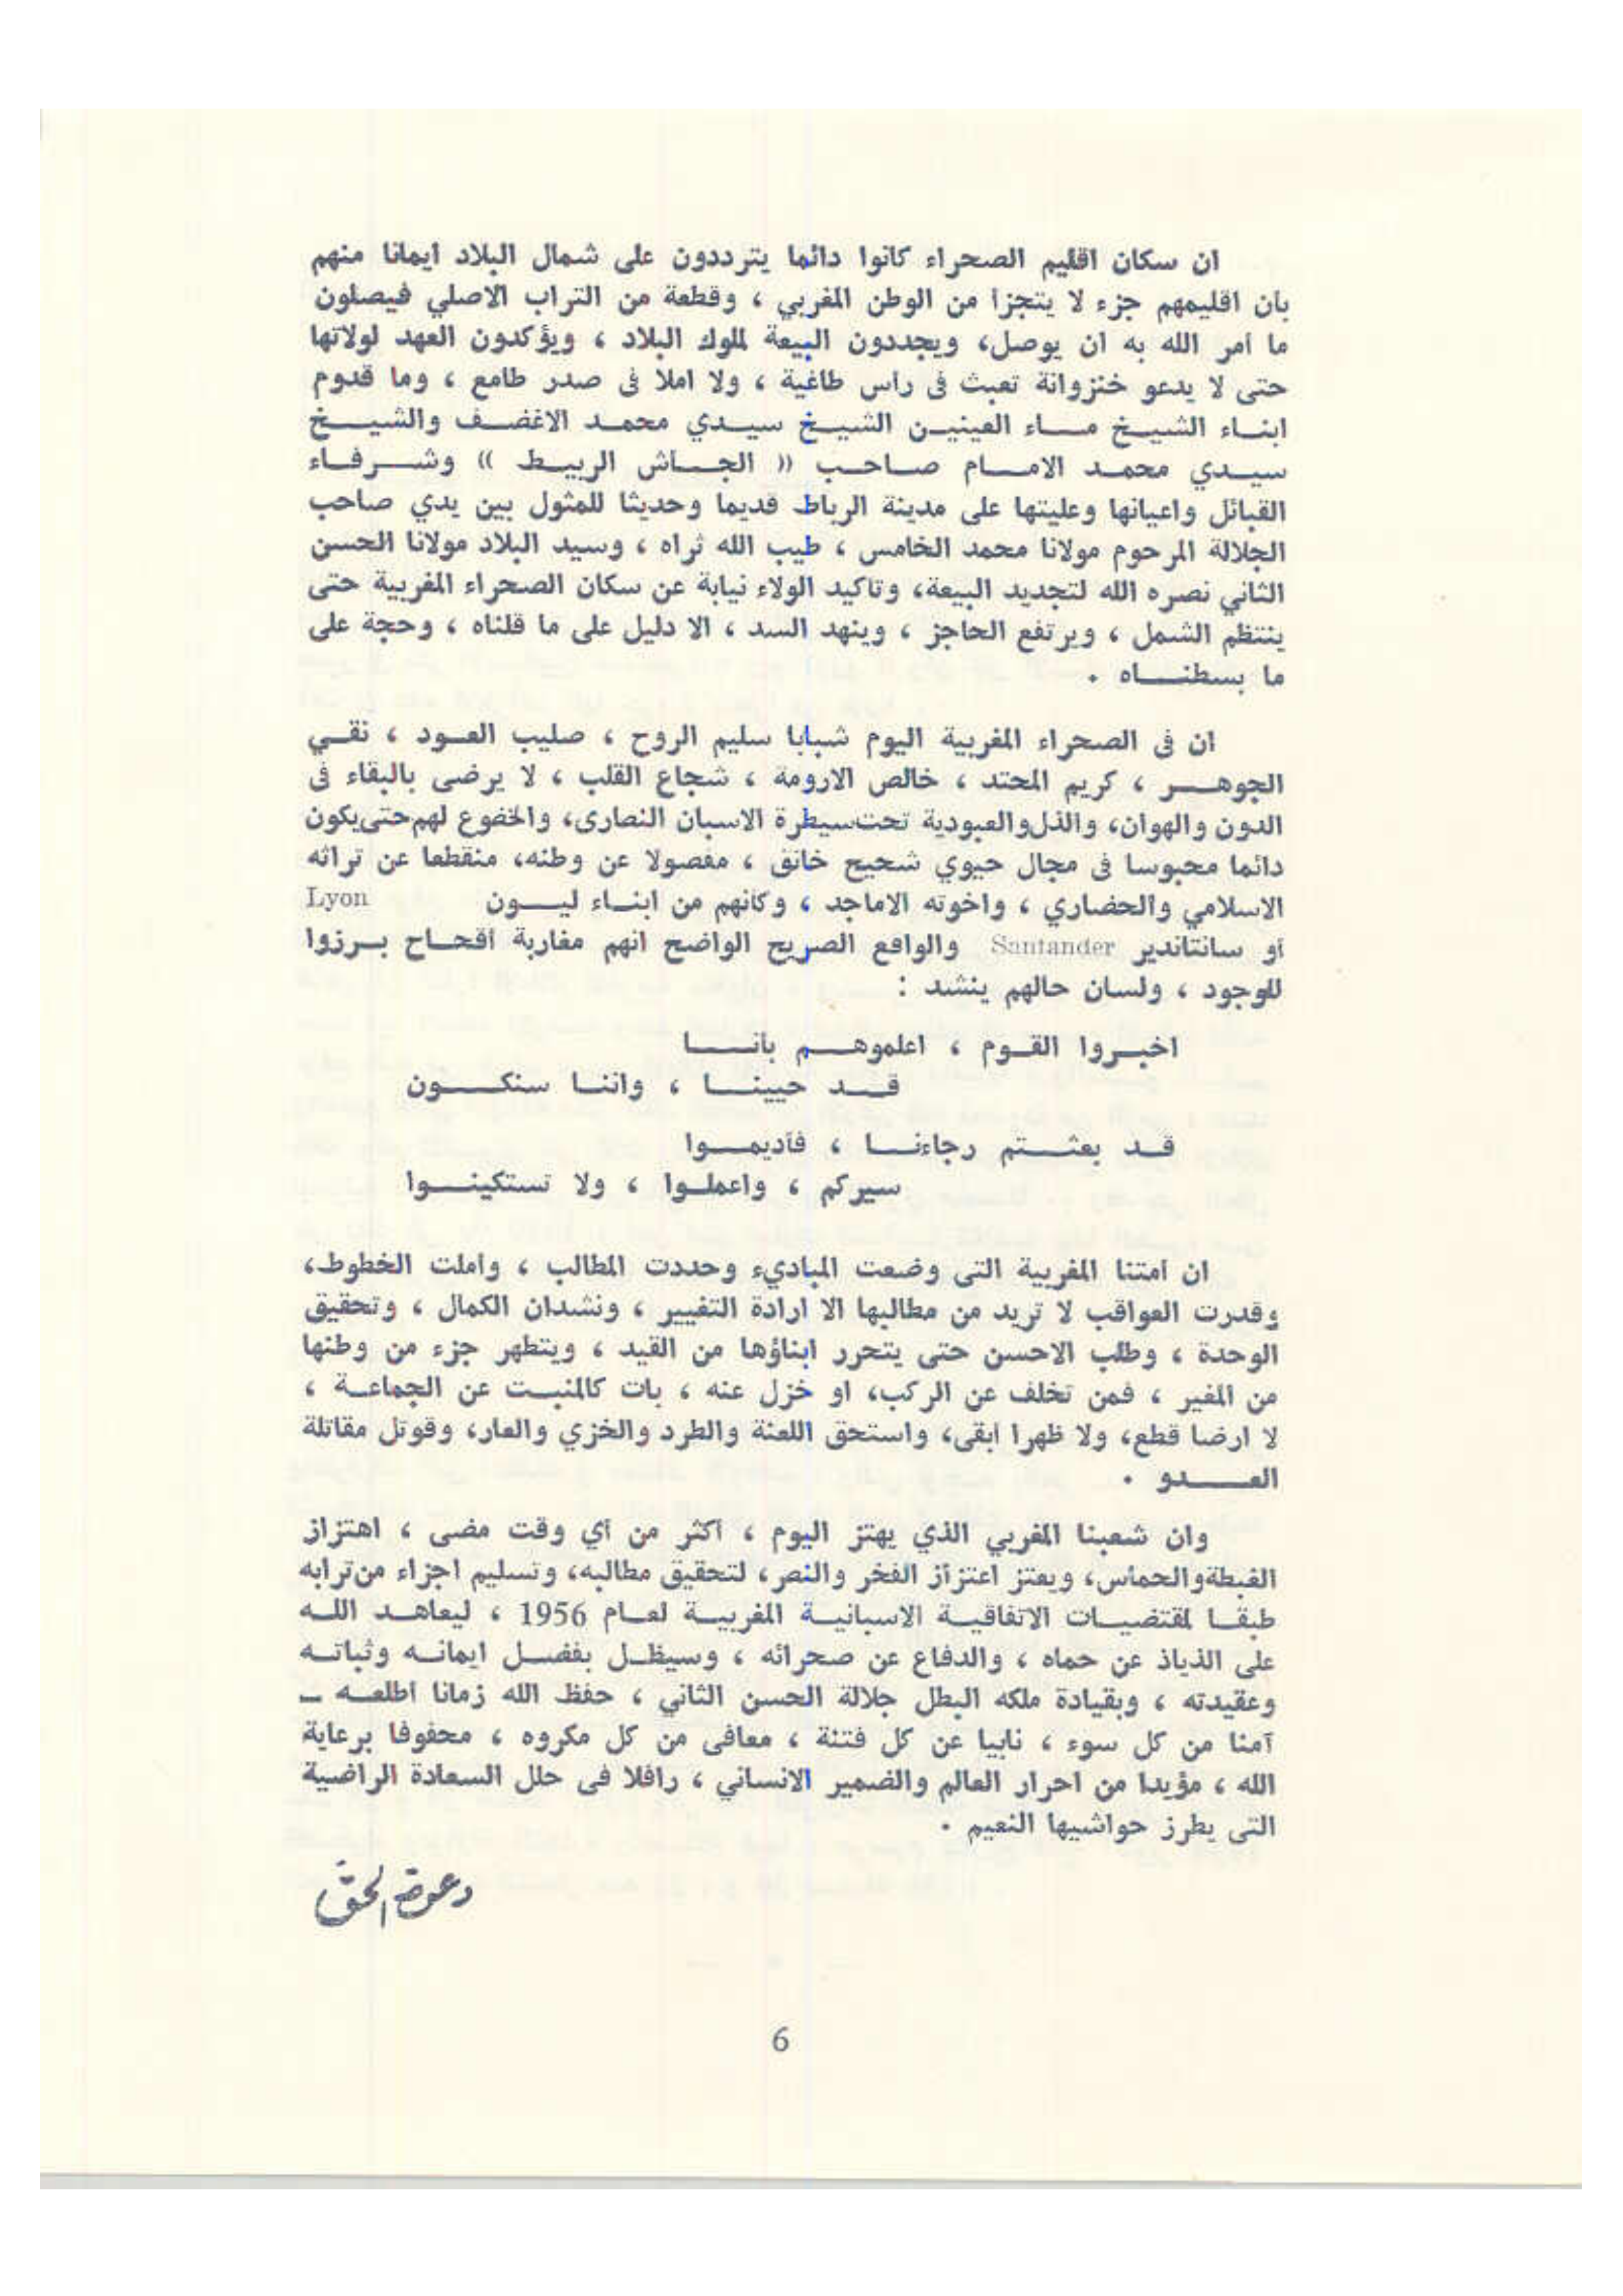 ان سكان اقليم الصحراء كانوا دائما يترددون على شمال البلاد ايمانا منهم
بأن اقليمهم جزء لا يتجزأ من الوطن المغربي ، وقطعة من التراب الاصلي فيصلون
ما أمر الله به أن يوصل، ويجددون البيعة لملوك البلاد ، ويؤكدون العهد لولاتها
حتى لا يدعو خنزوانة تعبث فى رأس طاغية ، ولا أملا فى صدر طامع ، وما قدوم
ابناء الشيخ ماء العينين الشيخ سيدي محمد الاغضف والشيخ
سيدي محمد الامام صاحب « الجأش الربيط » وشرفاء
القبائل واعيانها وعليتها على مدينة الرباط قديما وحديثا للمثول بين يدي صاحب
الجلالة المرحوم مولانا محمد الخامس ، طيب الله ثراه ، وسيد البلاد مولانا الحسن
الثاني نصره الله لتجديد البيعة، وتأكيد الولاء نيابة عن سكان الصحراء المغربية حتى
ينتظم الشمل ، ويرتفع الحاجز ، وينهد السد ، الا دليل على ما قلناه ، وحجة على
ما بسطناه .
ان فى الصحراء المغربية اليوم شبابا سليم الروح ، صليب العود ، نقي
الجوهر ، كريم المحتد ، خالص الارومة ، شجاع القلب ، لا يرضى بالبقاء فى
الدون والهوان، والذل والعبودية تحت سيطرة الاسبان النصارى، والخضوع لهم حتى يكون
دائما محبوسا فى مجال حيوي شحيح خانق ، مفصولا عن وطنه، منقطعا عن تراثه
الاسلامي والحضاري ، واخوته الاماجد ، وكأنهم من ابناء ليون Lyon
أو سانتاندير Santander والواقع الصريح الواضح انهم مغاربة أقحاح برزوا
للوجود ، ولسان حالهم ينشد :
اخبروا القوم ، اعلموهم بأنا
قد حيينا ، واننا سنكون
قد بعثتم رجاءنا ، فأديموا
سيركم ، واعملوا ، ولا تستكينوا
ان امتنا المغربية التى وضعت المباديء وحددت المطالب ، وأملت الخطوط،
وقدرت العواقب لا تريد من مطالبها الا ارادة التغيير ، ونشدان الكمال ، وتحقيق
الوحدة ، وطلب الاحسن حتى يتحرر ابناؤها من القيد ، ويتطهر جزء من وطنها
من المغير ، فمن تخلف عن الركب، او خزل عنه ، بات كالمنبت عن الجماعة ،
لا ارضا قطع، ولا ظهرا أبقى، واستحق اللعنة والطرد والخزي والعار، وقوتل مقاتلة
العدو .
وان شعبنا المغربي الذي يهتز اليوم ، أكثر من أي وقت مضى ، اهتزاز
الغبطة والحماس، ويعتز اعتزاز الفخر والنصر، لتحقيق مطالبه، وتسليم اجزاء من ترابه
طبقا لمقتضيات الاتفاقية الاسبانية المغربية لعام 1956 ، ليعاهد الله
على الذياذ عن حماه ، والدفاع عن صحرائه ، وسيظل بفضل ايمانه وثباته
وعقيدته ، وبقيادة ملكه البطل جلالة الحسن الثاني ، حفظ الله زمانا أطلعه ــ
آمنا من كل سوء ، نابيا عن كل فتنة ، معافى من كل مكروه ، محفوفا برعاية
الله ، مؤيدا من احرار العالم والضمير الانساني ، رافلا فى حلل السعادة الراضية
التى يطرز حواشيها النعيم .
دعوة الحق
6